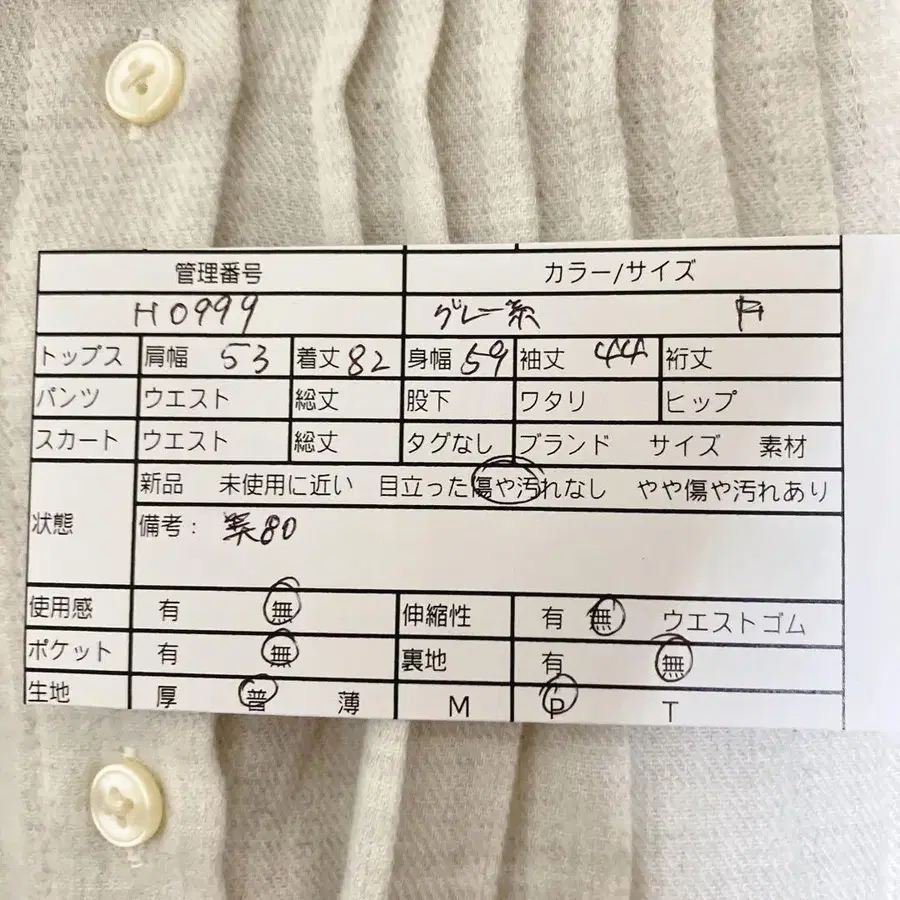 管理番号 カラー/サイズ
H0999 グレー系
トップス 肩幅 53 着丈 82 身幅 59 袖丈 44 裄丈
パンツ ウエスト 総丈 股下 ワタリ ヒップ
スカート ウエスト 総丈 タグなし ブランド サイズ 素材
状態 新品 未使用に近い 目立った傷や汚れなし やや傷や汚れあり
備考: 80
使用感 有 無 伸縮性 有 無 ウエストゴム
ポケット 有 無 裏地 有 無
生地 厚 普 薄 M P T